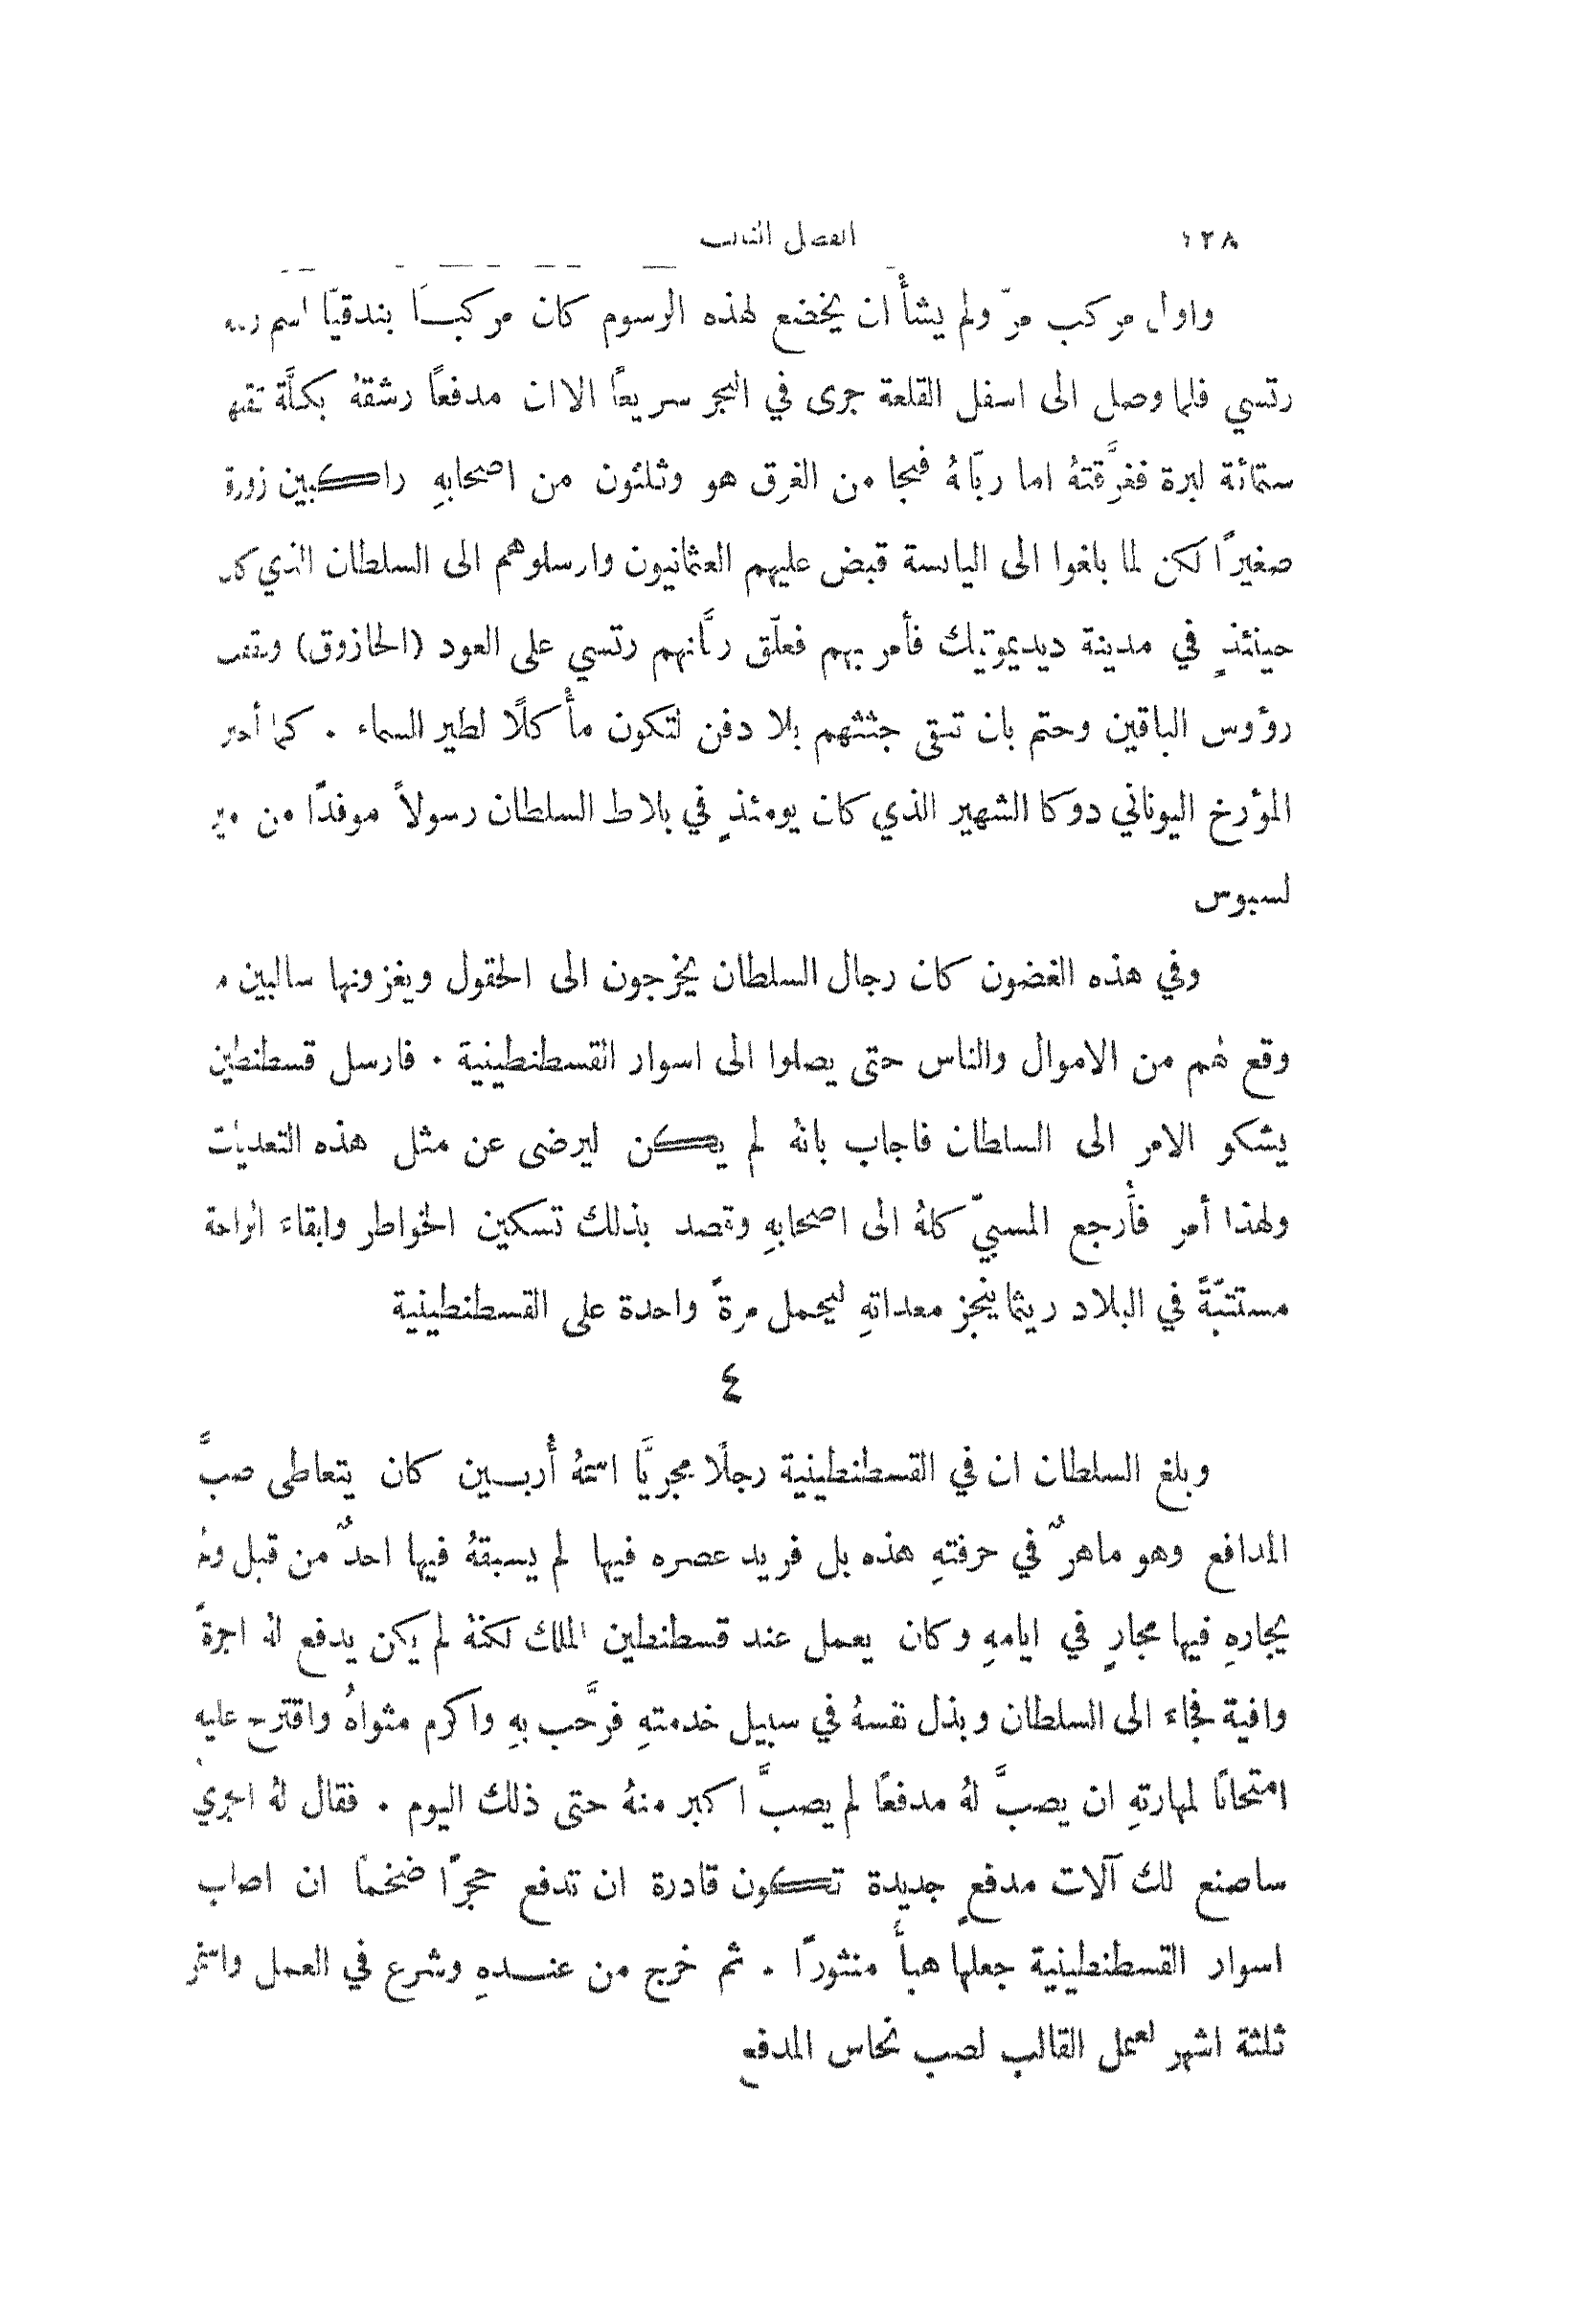 ١٢٨ الفصل الثالث
واول مركب مرّ ولم يشأ ان يخضع لهذه الرسوم كان مركبًا بندقيًّا اسم
رتسي فلما وصل الى اسفل القلعة جرى في البحر سريعًا الا ان مدفعًا رشقهُ بكلَّة
ستمائة ليرة فغرَّقتهُ اما ربّانهُ فنجا من الغرق هو وثلثون من اصحابهِ راكبين
صغيرًا لكن لما بلغوا الى اليابسة قبض عليهم العثمانيون وارسلوهم الى السلطان الذي
حينئذٍ في مدينة ديديموتيك فأمر بهم فعلّق ربَّانهم رتسي على العود (الخازوق)
رؤوس الباقين وحتم بان تبقى جثثهم بلا دفن لتكون مأكلًا لطير السماء . كما
المؤرخ اليوناني دوكا الشهير الذي كان يومئذٍ في بلاط السلطان رسولاً موفدًا من
لسبوس
وفي هذه الغضون كان رجال السلطان يخرجون الى الحقول ويغزونها سالبين
وقع لهم من الاموال والناس حتى يصلوا الى اسوار القسطنطينية . فارسل قسطنطين
يشكو الامر الى السلطان فاجاب بانهُ لم يكن ليرضى عن مثل هذه التعديات
ولهذا أمر فأَرجع المسبيّ كلهُ الى اصحابهِ وقصد بذلك تسكين الخواطر وابقاء الراحة
مستتبّةً في البلاد ريثما ينجز معداتهِ ليحمل مرةً واحدة على القسطنطينية
٤
وبلغ السلطان ان في القسطنطينية رجلًا مجريًّا اسمهُ أُربين كان يتعاطى صبَّ
المدافع وهو ماهرٌ في حرفتهِ هذه بل فريد عصره فيها لم يسبقهُ فيها احدٌ من قبل
يجارهِ فيها مجارٍ في ايامهِ وكان يعمل عند قسطنطين الملك لكنهُ لم يكن يدفع لهُ اجرةً
وافية فجاء الى السلطان وبذل نفسهُ في سبيل خدمتهِ فرحَّب بهِ واكرم مثواهُ واقترح عليه
امتحانًا لمهارتهِ ان يصبَّ لهُ مدفعًا لم يصبَّ اكبر منهُ حتى ذلك اليوم . فقال لهُ المجري
ساصنع لك آلات مدفعٍ جديدة تكون قادرة ان تدفع حجرًا ضخمًا ان اصاب
اسوار القسطنطينية جعلها هبأً منثورًا . ثم خرج من عندهِ وشرع في العمل واستمر
ثلثة اشهر لعمل القالب لصب نحاس المدفع